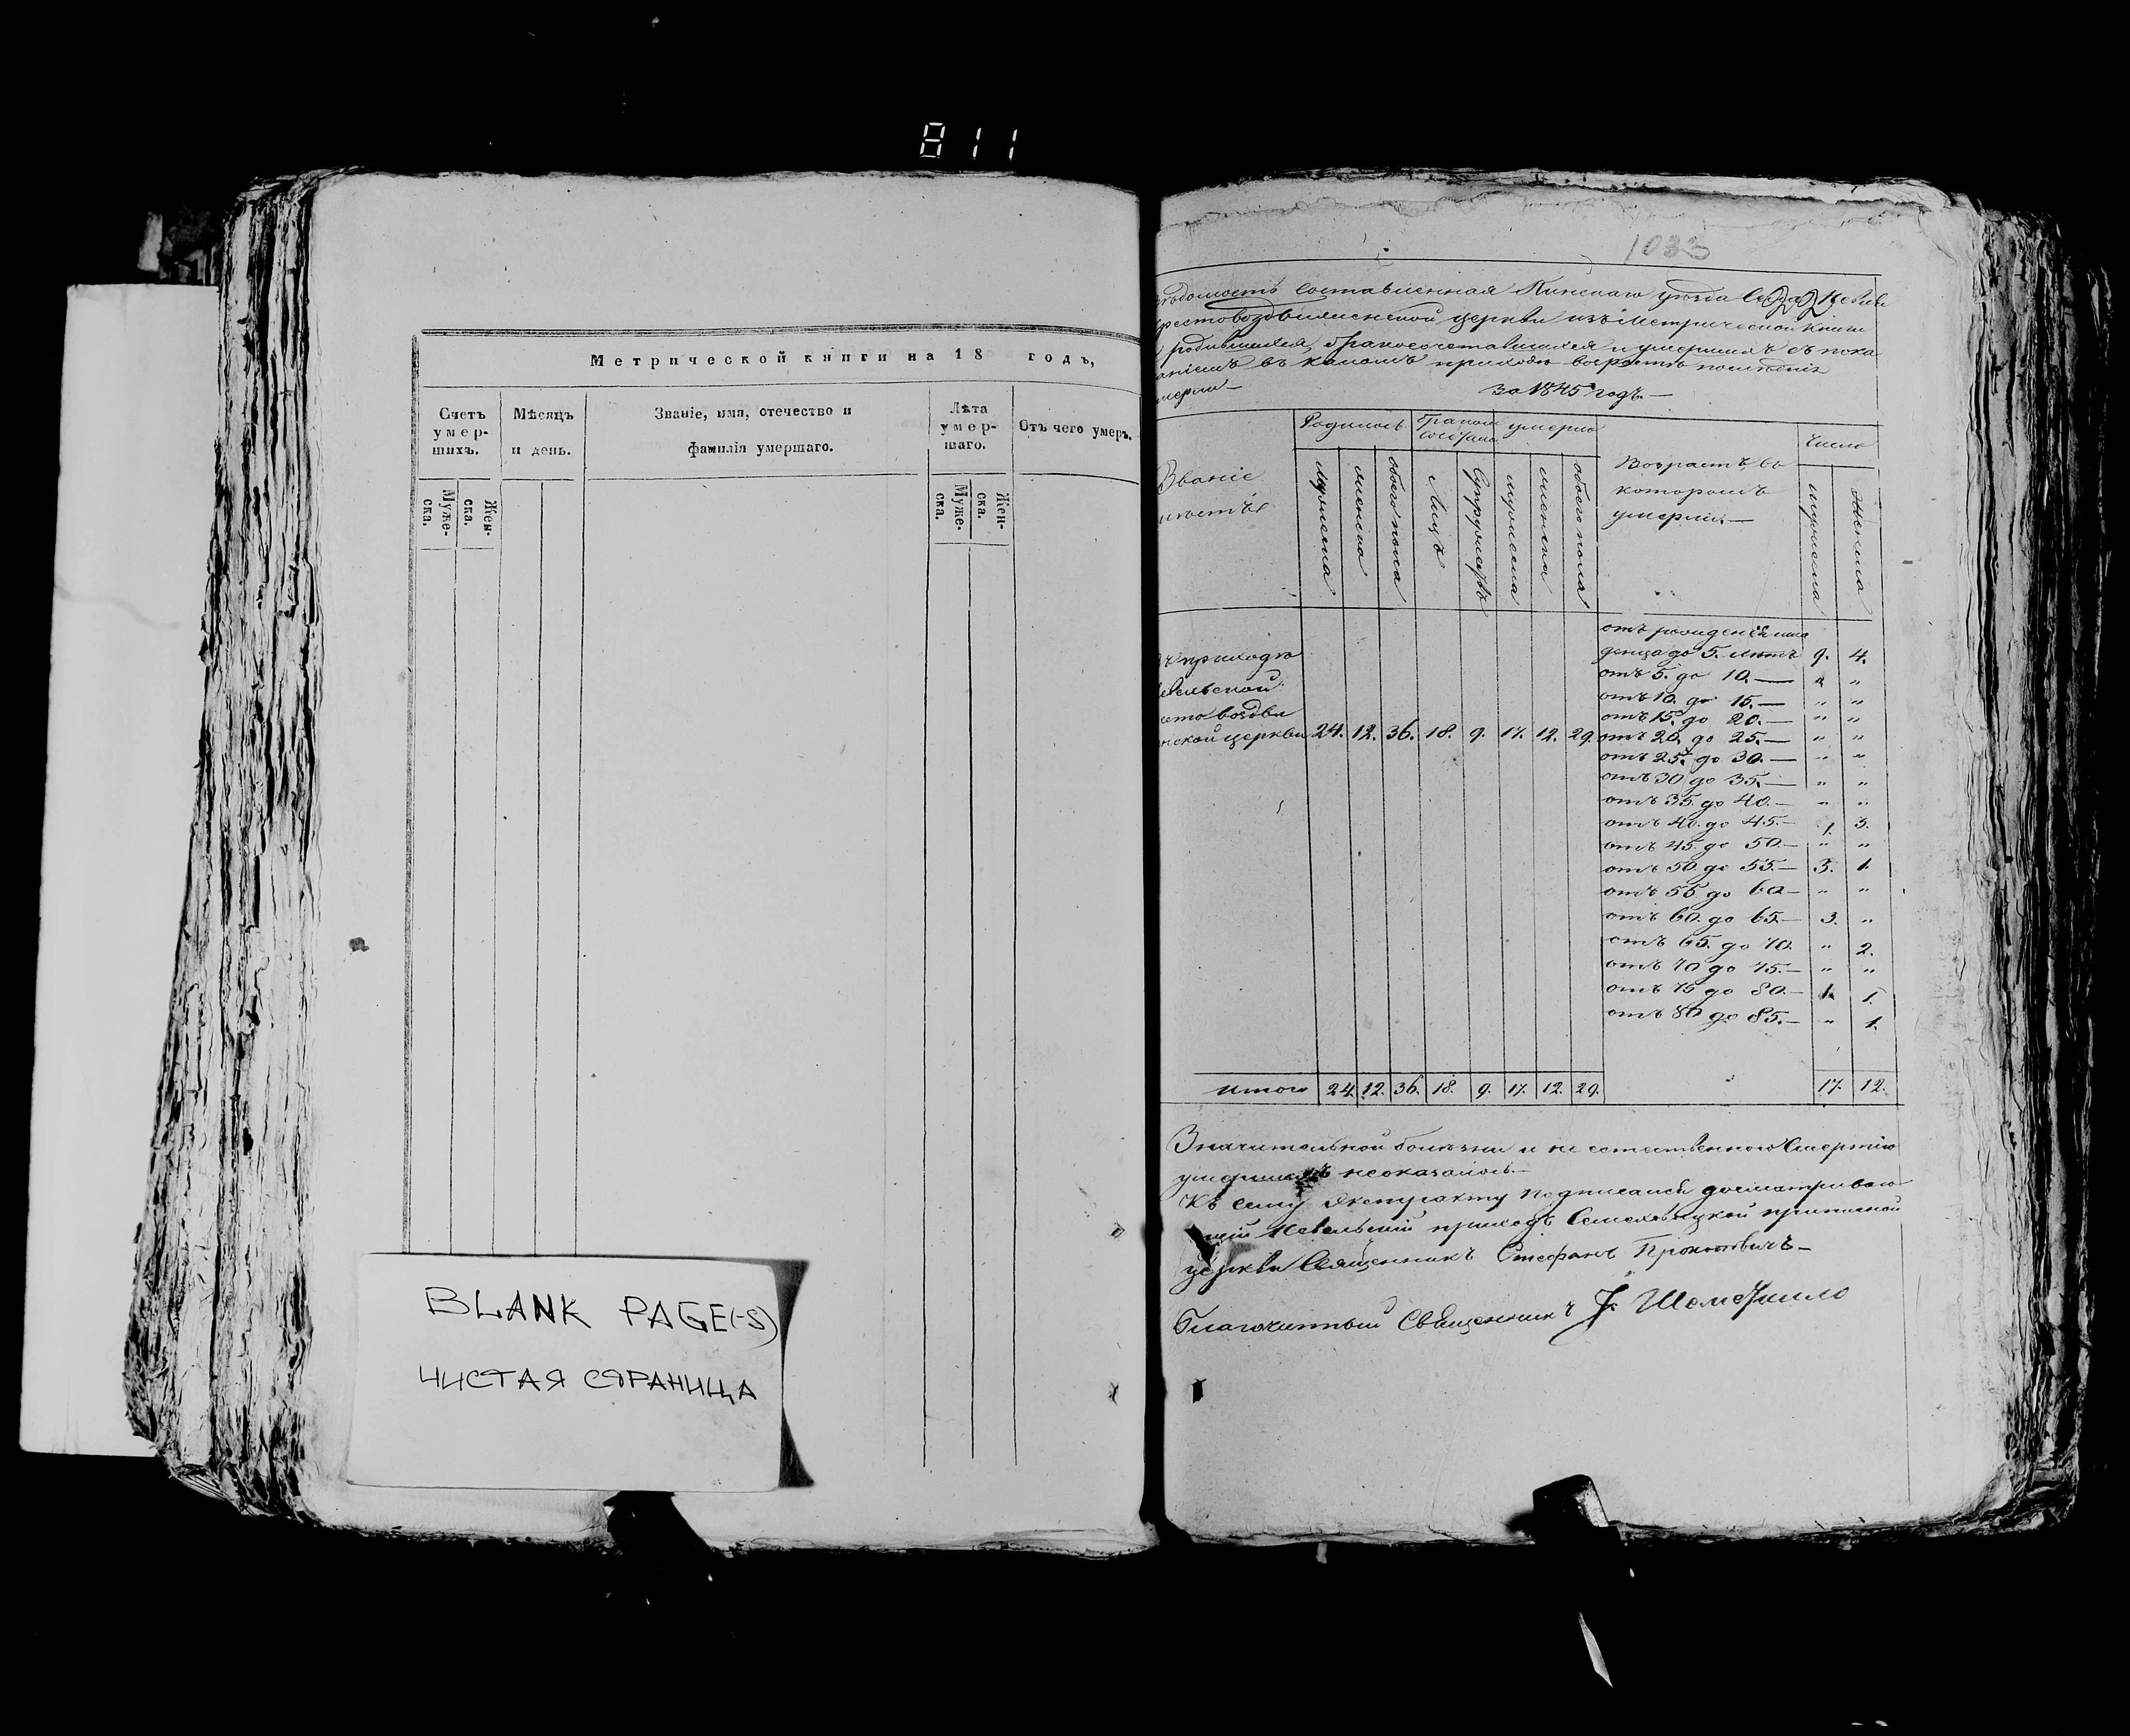 811
Метрической книги на 18 годъ,
Счетъ умер-шихъ.
Мѣсяцъ и день.
Званіе, имя, отечество и фамилія умершаго.
Лѣта умер-шаго.
Отъ чего умеръ.
Муже-ска.
Жен-ска.
Муже-ска.
Жен-ска.
BLANK PAGE(-S)
ЧИСТАЯ СТРАНИЦА
1033
составленная Пинскаго уѣзда
церкви изъ Метрической Книги
родившихся, бракосочетавшихся и умершихъ съ пока
въ какомъ приходѣ
за 1845 годъ.—
Званіе
Родилось
умерло
Возрастъ въ
которомъ
умерли.—
Число
мужеска
женска
обоего пола
Лицъ
Супружествъ
мужеска
женска
обоего пола
мужеска
женска
приходѣ
церкви 24. 12. 36. 18. 9. 17. 12. 29.
отъ рожденія мла
денца до 5. лѣтъ 9. 4.
отъ 5. до 10.— „ „
отъ 10. до 15.— „ „
отъ 15. до 20.— „ „
отъ 20. до 25.— „ „
отъ 25. до 30.— „ „
отъ 30 до 35.— „ „
отъ 35. до 40.— „ „
отъ 40. до 45.— 1. 3.
отъ 45. до 50.— „ „
отъ 50 до 55.— 3. 1.
отъ 55 до 60— „ „
отъ 60. до 65.— 3. „
отъ 65. до 70. „ 2.
отъ 70 до 75.— „ „
отъ 75 до 80.— 1. 1.
отъ 80 до 85.— „ 1.
итого 24. 12. 36. 18. 9. 17. 12. 29. 17. 12.
Значительной болѣзни и не естественною Смертію
умершихъ неоказалось.—
Къ сему Экстракту подписался досматриваю
щій приходъ приписной
церкви Священникъ Стефанъ Прокоповичъ—
Благочинный Священникъ